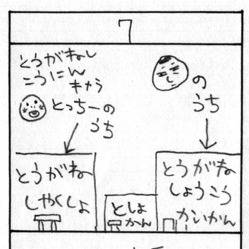 7
とうがねし
こうにん
キャラ
とっちーの
うち
の
うち
とうがね
しやくしょ
としょ
かん
とうがね
しょうこう
かいかん